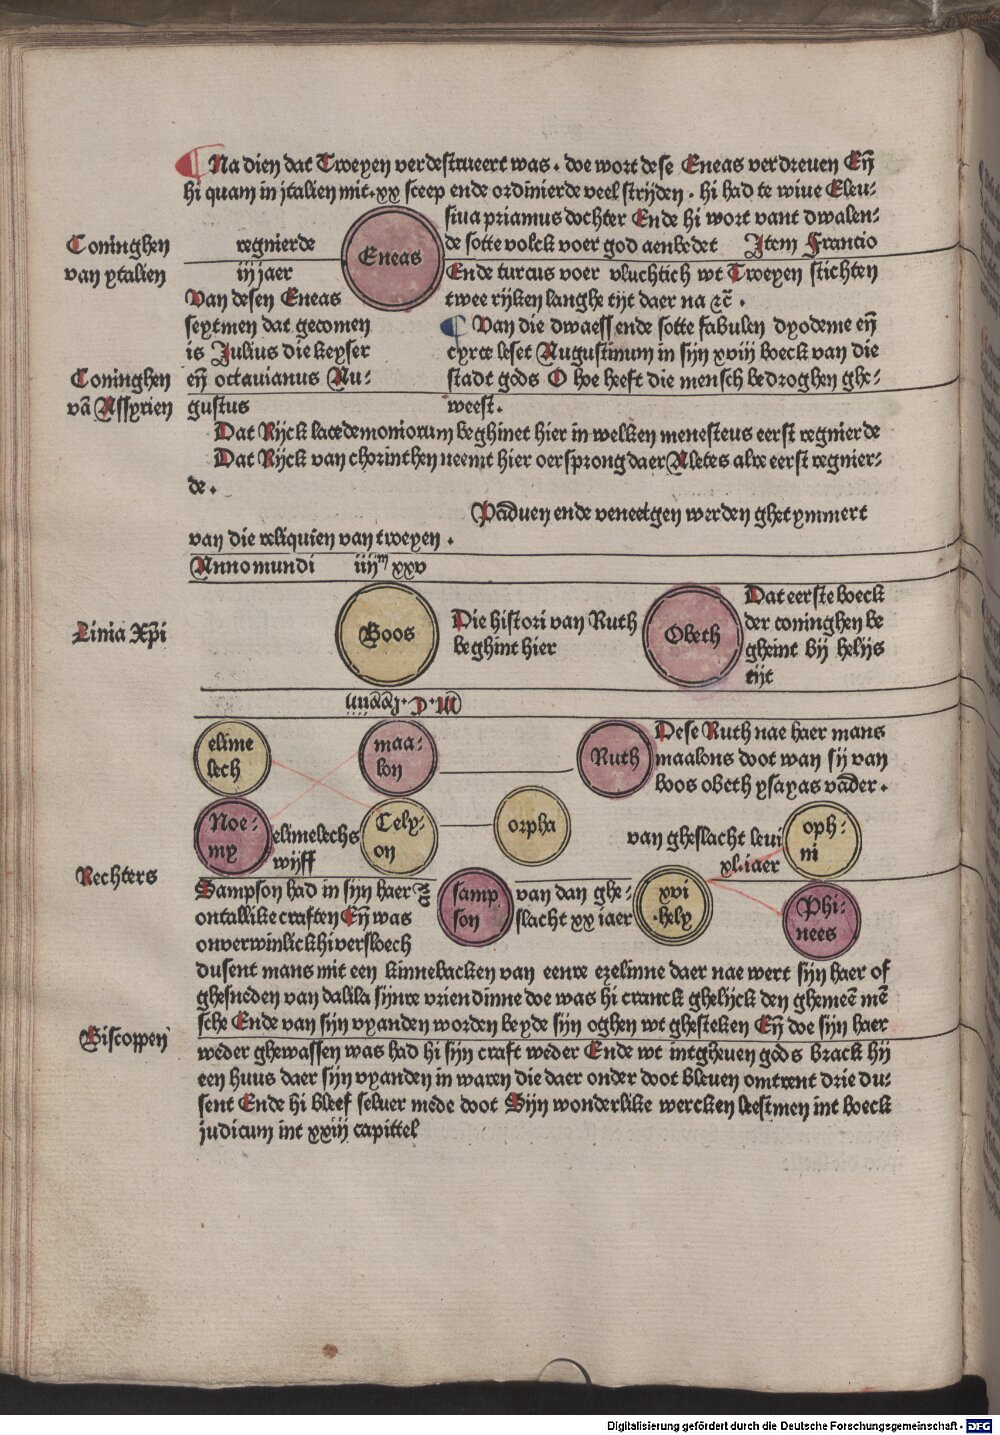 ¶ Na dien dat Troeyen verdestrueert was. doe wort dese Eneas verdreuen Eñ
hi quam in jtalien mit. xx sceep ende ordinierde veel strijden. hi had te wiue Eleu-
siua priamus dochter Ende hi wort vant dwalen-
de sotte volck voer god aenbedet Item Francio
Ende turcus voer vluchtich wt Troeyen stichten
twee rijken langhe tijt daer na ⁊c̄.
Coninghen
van ytalien
regnierde
iij jaer
Eneas
Van desen Eneas
seytmen dat gecomen
is Julius die keyser
eñ octauianus Au-
gustus
¶ Van die dwaess ende sotte fabulen dyodeme eñ
cyrce leset Augustinum in sijn xviij boeck van die
stadt gods O hoe heeft die mensch bedroghen ghe-
weest.
Coninghen
vā Assyrien
Dat Rijck lacedemoniorum beghinet hier in welken menesteus eerst regnierde
Dat Rijck van chorinthen neemt hier oersprong daer Aletes alre eerst regnier-
de.
Paduen ende veneetgen werden ghetymmert
van die reliquien van troeyen.
Anno mundi iiijᵐ xxv
Linia Xp̄i
Boos
Die histori van Ruth
beghint hier
Obeth
Dat eerste boeck
der coninghen be
gheint bij helijs
tijt
M.C.lxxiiii
elime
lech
maa-
lon
Ruth
Dese Ruth nae haer mans
maalons doot wan sij van
boos obeth ysayas vāder.
Noe-
my
elimelechs
wijff
Cely-
on
orpha
van gheslacht leui
xl. iaer
oph-
ni
Rechters
Sampson had in sijn haer
ontallike craften Eñ was
onverwinlick hi versloech
samp
son
van dan ghe-
slacht xx iaer
xvi
hely
Phi-
nees
dusent mans mit een kinnebacken van eenre ezelinne daer nae wert sijn haer of
ghesneden van dalila sijnre vriendinne doe was hi cranck ghelijck den ghemeē mē
sche Ende van sijn vyanden worden beyde sijn oghen wt ghesteken Eñ doe sijn haer
Biscoppen
weder ghewassen was had hi sijn craft weder Ende wt intgheuen gods brack hij
een huus daer sijn vyanden in waren die daer onder doot bleuen omtrent drie du-
sent Ende hi bleef seluer mede doot Sijn wonderlike wercken leestmen int boeck
judicum int xxiij capittel
Digitalisierung gefördert durch die Deutsche Forschungsgemeinschaft - DFG